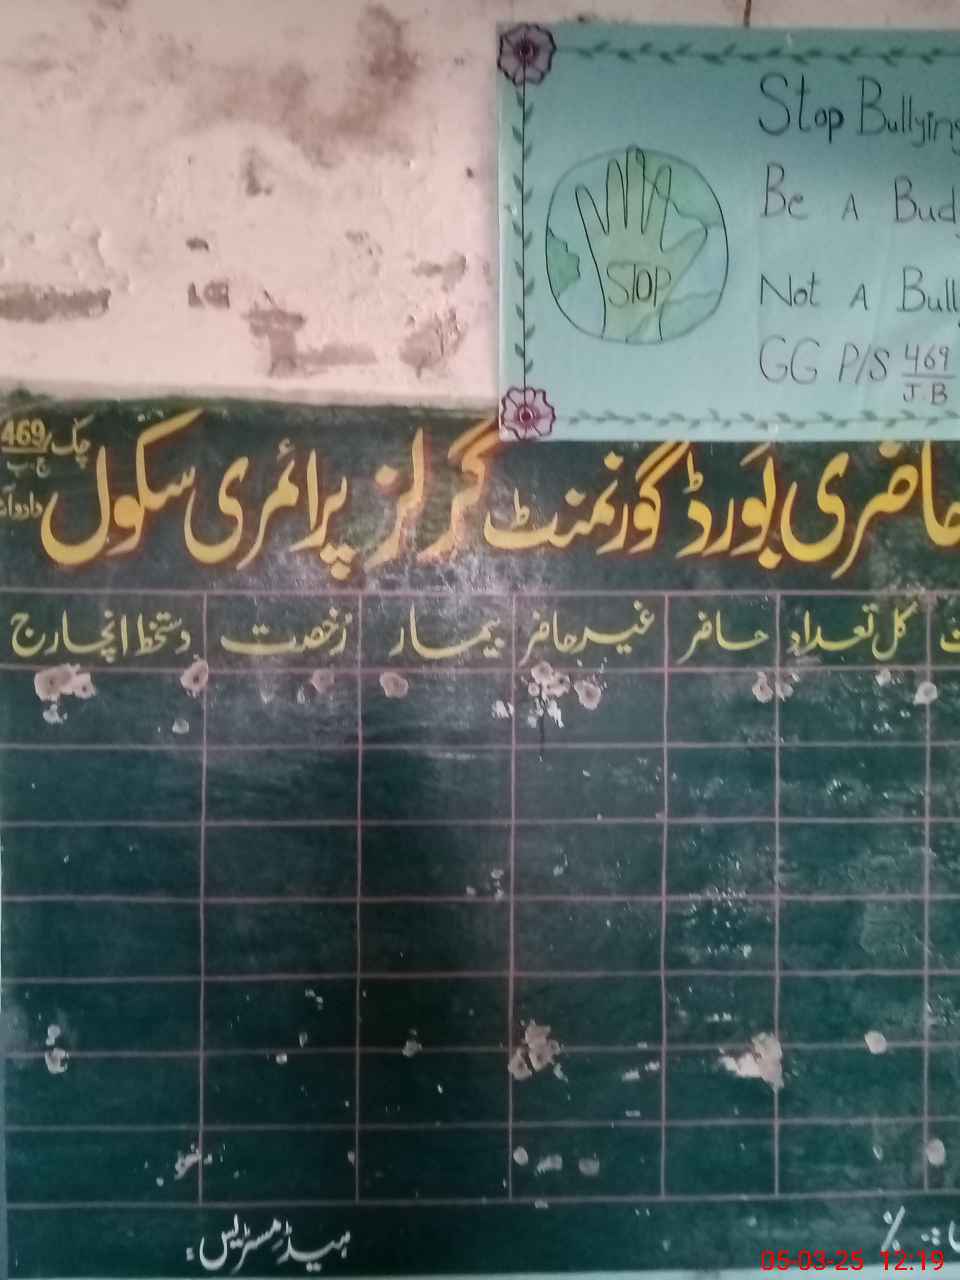 Stop Bullying
Be A Bud
Not A Bull
STOP
GG P/S 469/J.B
حاضری بورڈ گورنمنٹ گرلز پرائمری سکول چک 469/ج ب
کل تعداد حاضر غیر حاضر بیمار رخصت دستخط انچارج
ہیڈ مسٹریس:
%
05-03-25 12:19